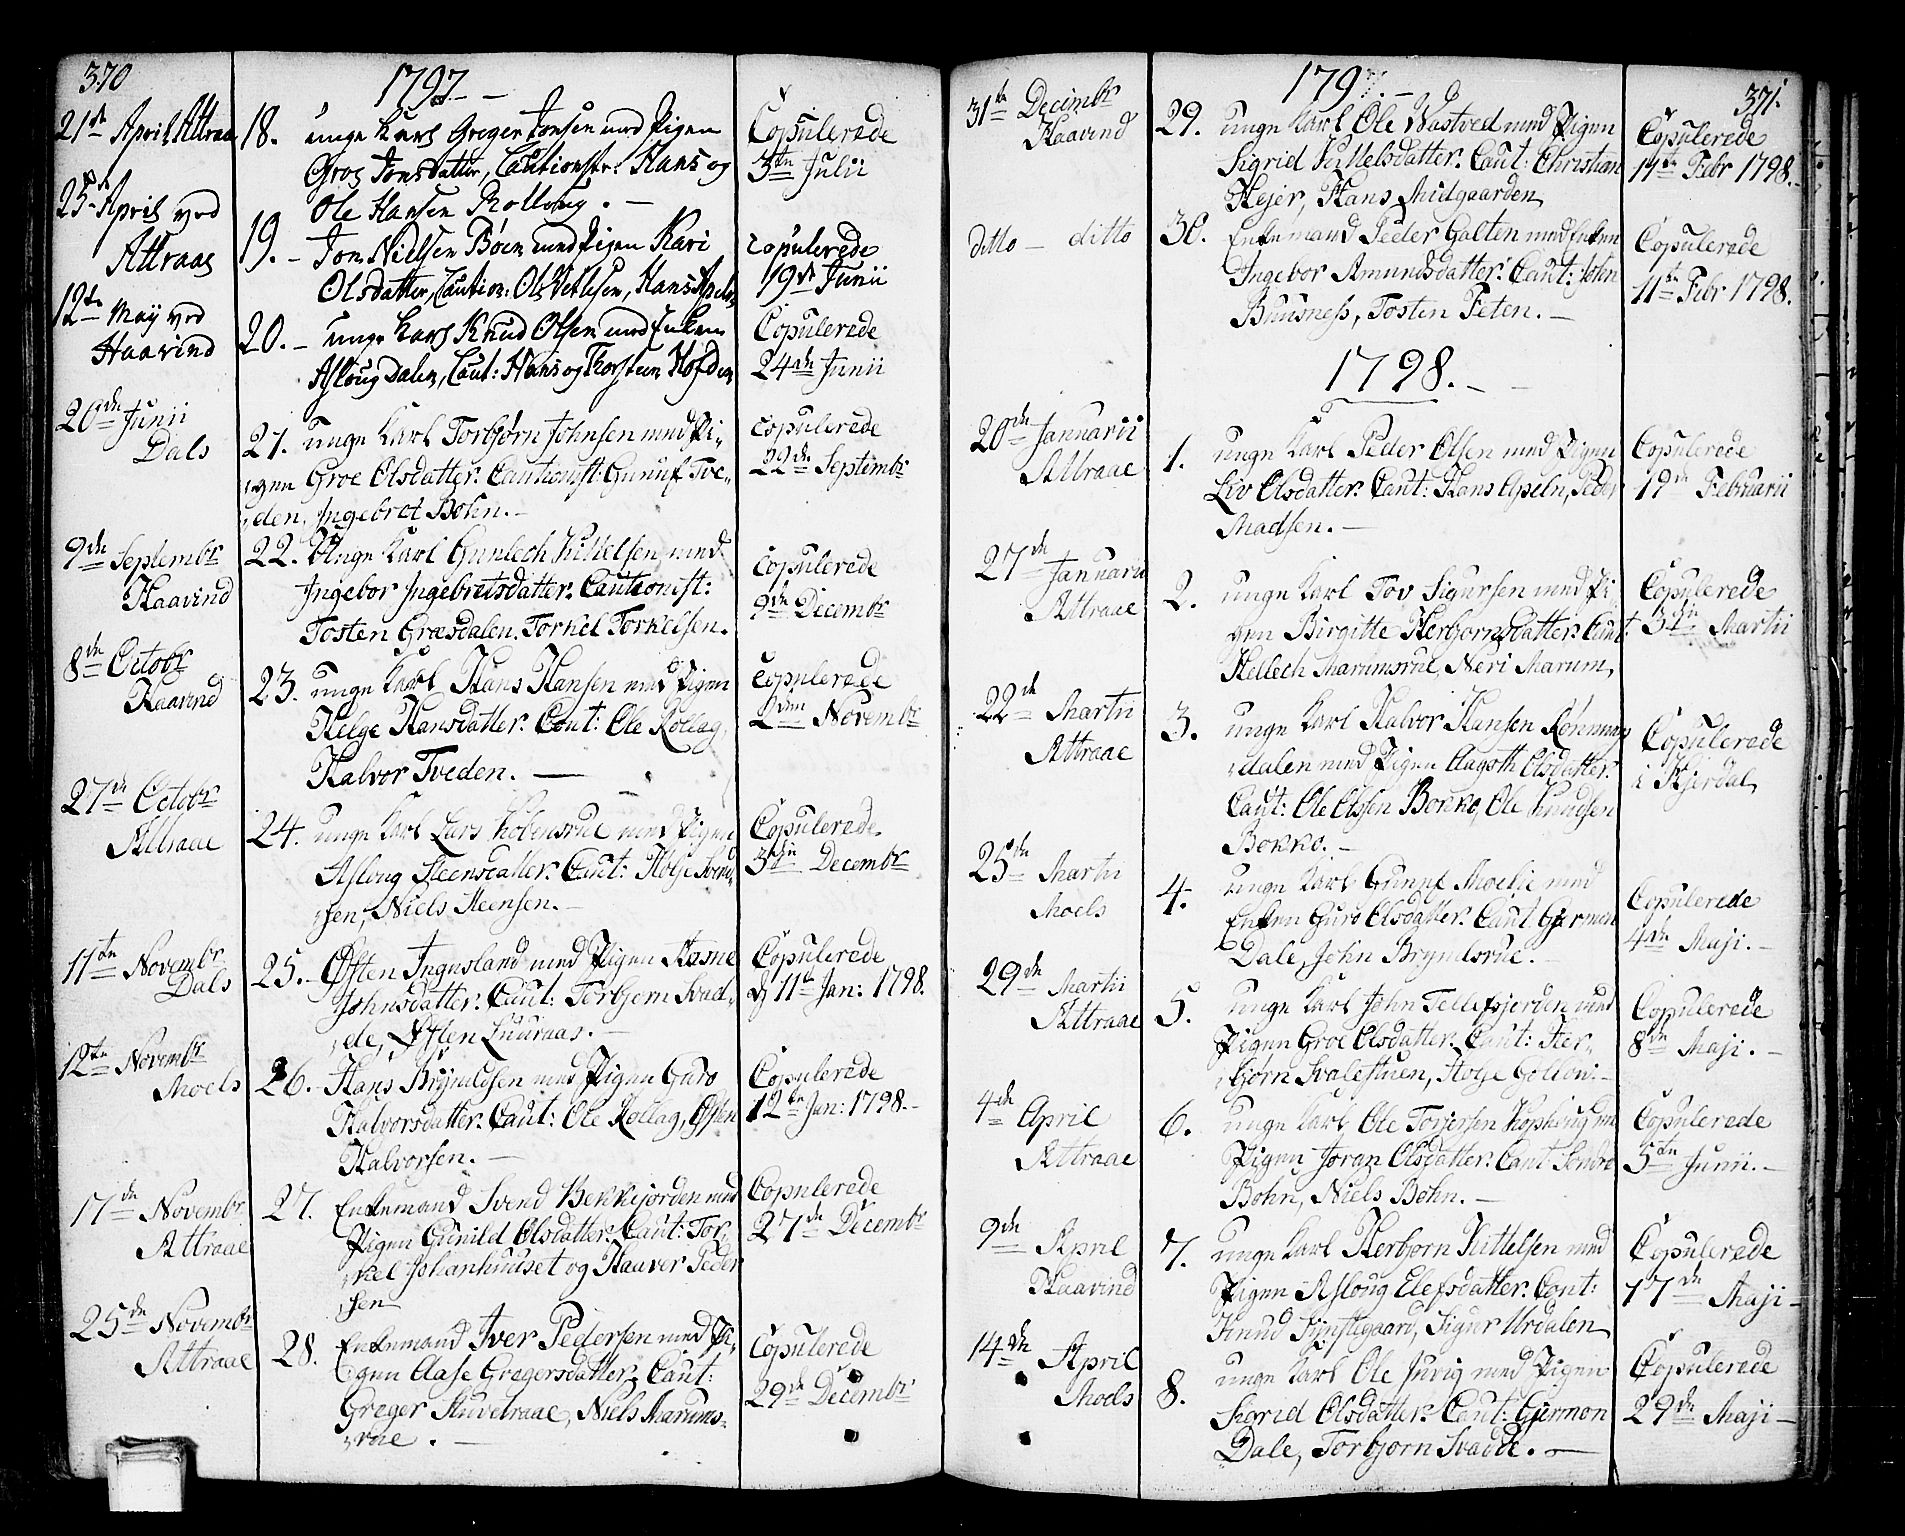 370
1797. –
21de April Attraae
18. unge Karl Greger Jonsen med Pigen
Groe Jonsdatter, Cautionistr: Hans og
Ole Hansen Rollaug. –
Copulerede
3die Julii
25de April ved
Attraae
19. – Jon Nielsen Böen med Pigen Kari
Olsdatter, Caution: Ole Vetlesen, Hans Apeln
Copulerede
19de Junii
12te May ved
Haavind
20. – unge Karl Knud Olsen med Enken
Asloug Dalen, Caut: Hans og Thorsteen Hofden
Copulerede
24de Junii
20de Junii
Dals
21. unge Karl Torbjörn Johnsen med Pi-
gen Groe Olsdatter. Cautionist: Gunuf Tve-
den, Ingebret Bohn. –
Copulerede
22de Septembr
9de Septembr
Haavind
22. Unge Karl Gunlech Kittelsen med
Ingebor Ingebretsdatter. Cautionist:
Tosten Græsdalen. Torkel Torkelsen.
Copulerede
9de Decembr
8de Octobr
Haavind
23. unge Karl Hans Hansen med Pigen
Helge Hansdatter. Caut: Ole Rollag,
Halvor Tveden. –
Copulerede
2den Novembr
27de Octobr
Attraae
24. unge Karl Lars Kobensrue med Pigen
Asloug Steensdatter. Caut: Holje Svend-
sen, Niels Steensen. –
Copulerede
3die Decembr
11te Novembr
Dals
25. – Østen Ingusland med Pigen Aasne
Johnsdatter. Caut: Torbjørn Svad-
de, Østen Luuraas. –
Copulerede
d. 11te Jan: 1798.
12te Novembr
Moels
26. Hans Brynildsen med Pigen Guro
Halvorsdatter. Caut: Ole Rollag, Østen
Halvorsen. –
Copulerede
12te Jan: 1798. –
17de Novembr
Attraae
27. Enkemand Svend Bekkejorden med
Pigen Gunild Olsdatter. Caut: Tor-
kel Johanhuuset og Haaver Peder
sen
Copulerede
27de Decembr
25de Novembr
Attraae
28. Enkemand Iver Pedersen med Pi-
gen Aase Gregersdatter. Caut:
Greger Stuvelraae, Niels Marums-
rue. –
Copulerede
29de Decembr
1797. –
371.
31te Decembr
Haavind
29. unge Karl Ole Wastved med Pigen
Sigrid Kittelsdatter. Caut: Christian
Hejer, Hans Midgaarden
Copulerede
11te Febr 1798. –
ditto – ditto
30. Enkemand Peder Golten med Enken
Ingebor Amundsdatter. Caut: John
Buusness, Tosten Feten. –
Copulerede
11te Febr 1798.
1798. –
20de Januarii
Attraae
1. unge Karl Peder Olsen med Pigen
Liv Olsdatter. Caut: Hans Apeln, Peder
Madsen. –
Copulerede
19de Februarii
27de Januarii
Attraae
2. unge Karl Tov Sigursen med Pi
gen Birgitte Herbjornsdatter. Caut:
Hellech Marumsrue, Neri Marum,
Copulerede
3die Martii
22de Martii
Attraae
3. unge Karl Halvor Hansen Rønnings
dalen med Pigen Aagoth Olsdatter.
Caut: Ole Olsen Bokko, Ole Knudsen
Bokko. –
Copulerede
i Hjerdal
25de Martii
Moels
4. unge Karl Gunuf Moelie med
Enken Guro Olsdatter. Caut Germon
Dale, John Brynlsrue. –
Copulerede
4de Maji. –
29de Martii
Attraae
5. unge Karl John Tellefsjorden med
Pigen Groe Olsdatter. Caut: Her-
bjørn Svalestuen, Holje Golien. –
Copulerede
8de Maji. –
4de April
Attraae
6. unge Karl Ole Torjersen Kophoug med
Pigen Joran Olsdatter. Caut Sondre
Bohn, Niels Bohn. –
Copulerede
5te Junii. –
9de April
Haavind
7. unge Karl Herbjorn Kittelsen med
Pigen Asloug Elefsdatter. Caut:
Knud Synstegaard, Sigur Urdalen
Copulerede
17de Maji –
14de April
Moels
8. unge Karl Ole Juvig med Pigen
Sigrid Olsdatter. Caut: Germon
Dale, Torbjorn Svadde. –
Copulerede
29de Maji –